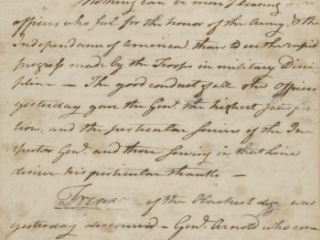 Nothing can be more pleasing to the
officers who feel for the honor of the Army, & the
independance of America, than to see the rapid
progress made by the Troops in military Disci
pline — The good conduct of all the officers
yesterday gave the Genl. the highest satisfac
tion, and the particular service of the In
spector Genl. and those serving in that line
deserve his particular thanks —
Treason of the blackest dye was
yesterday discovered — Genl. Arnold who com